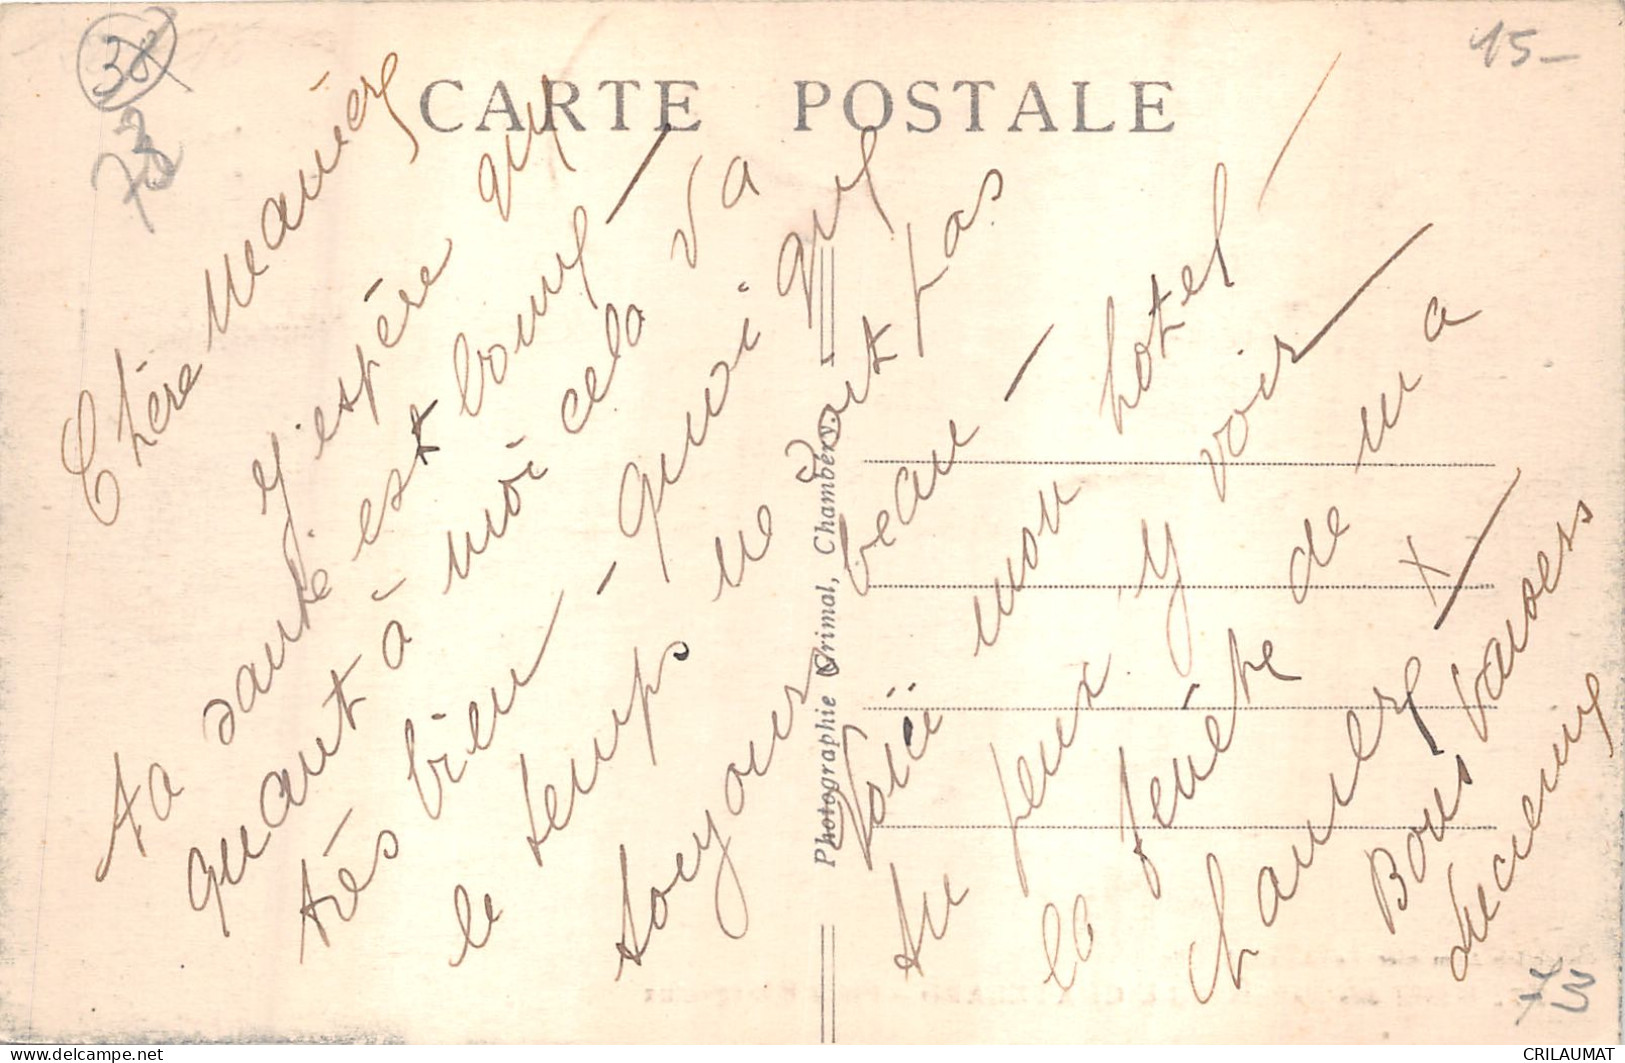 38
73
15-
CARTE POSTALE
Chère
j'espère que
ta santé est bonne -
quant à moi cela va
très bien - quoi que
le temps ne soit pas
toujours beau -
Voici mon hotel -
tu peux y voir
la fenêtre de ma
chambre X
Bons baisers
Photographie Grimal, Chambéry.
73
CRILAUMAT